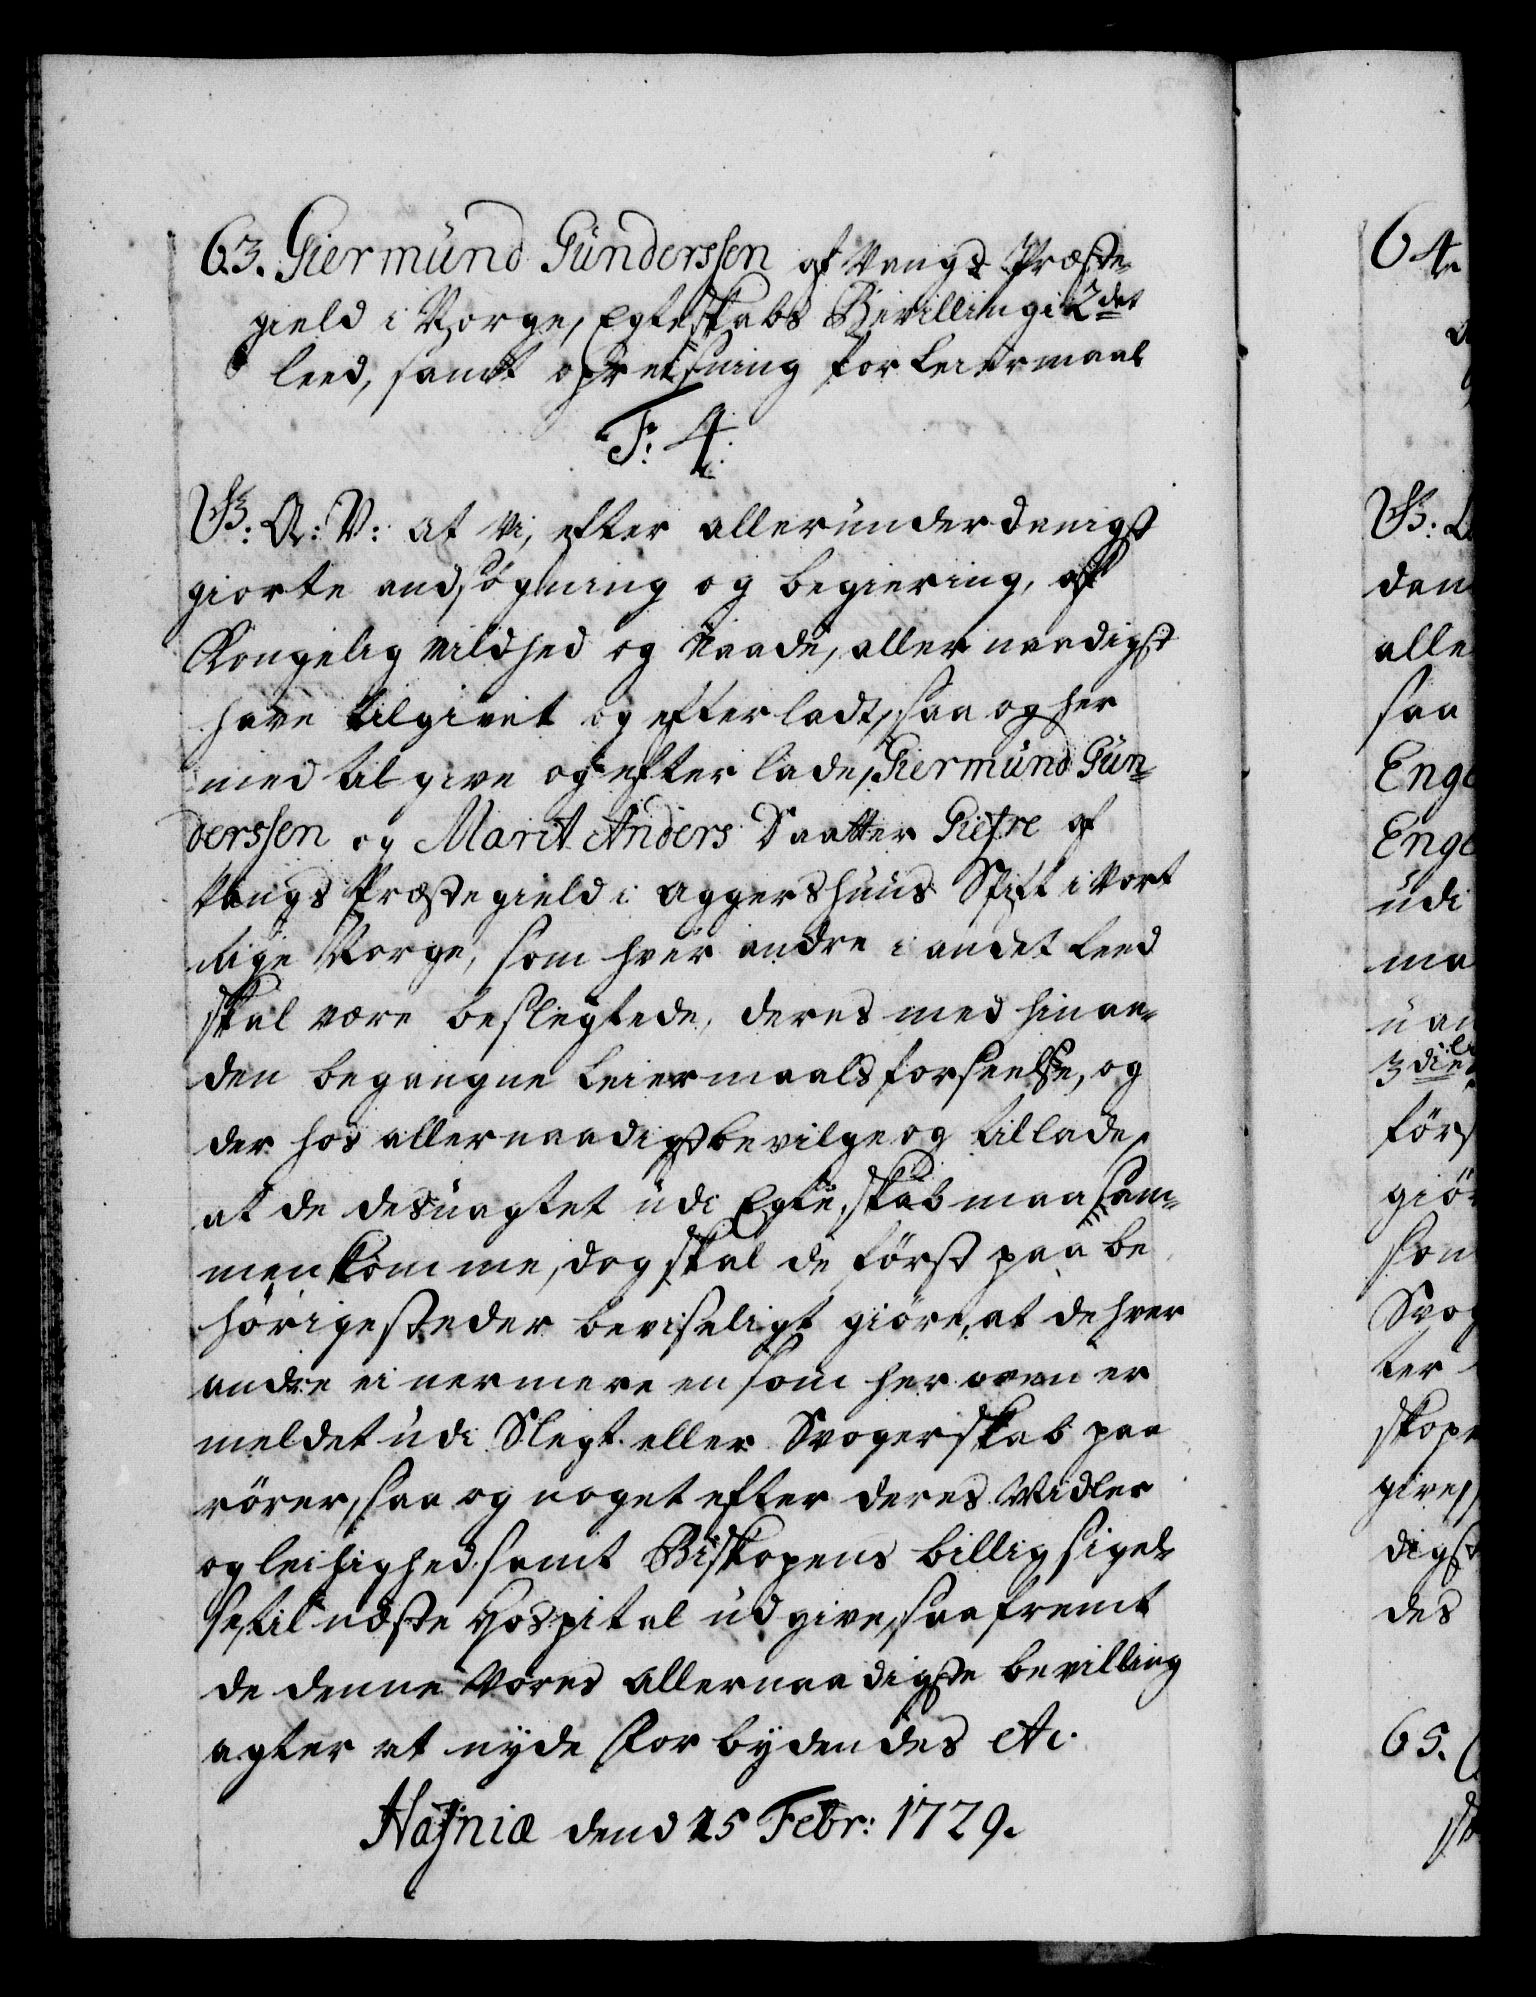 63. Giermund Gunderssen af Vangs Præste-
gield i Norge, Egteskabs Bevilling i 2det
leed, samt opreisning for Leiermaal
F: 4.
G. A: V: at Vi, efter allerunderdanigst
giorte andsøgning og begiering, af
Kongelig Mildhed og Naade, allernaadigst
have tilgivet og efterladt, saa og her
med tilgive og efterlade, Giermund Gun-
derssen og Marit Anders Daatter af
Vangs Præstegield i Aggershuus Stift i Vort
Rige Norge, som hver andre i andet Leed
skal være beslegtede, deres med hinan-
den begangne Leiermaals forseelse, og
der hos allernaadigst bevilge og tillade,
at de desuagtet udi Egteskab maa sam-
menkomme, dog skal de først paa be
hørige steder beviseligt giøre, at de hver
andre ei nermere en som her oven er
meldet udi Slegt eller Svogerskab paa
rører, saa og noget efter deres Midler
og leilighed samt Biskopens billig sigel-
se til næste Hospital udgive, saafremt
de denne Vores allernaadigste bevilling
agter at nyde Forbydendes etc.
Hafniæ dend 25 Febr: 1729.
64.
G.
dan
alle
saa
Enge
Enge
udi
ma
uan
3die
førs
giør
Svog
ter
skope
give,
digst
des
65.